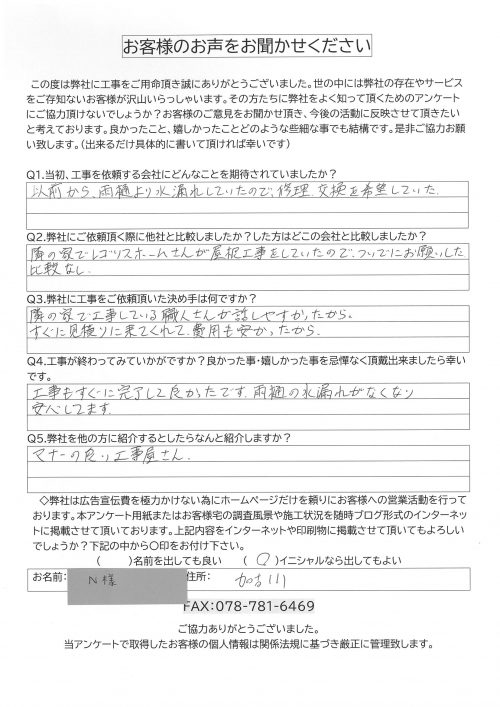 お客様のお声をお聞かせください
この度は弊社に工事をご用命頂き誠にありがとうございました。世の中には弊社の存在やサービス
をご存知ないお客様が沢山いらっしゃいます。その方たちに弊社をよく知って頂くためのアンケート
にご協力頂けないでしょうか？お客様のご意見をお聞かせ頂き、今後の活動に反映させて頂きたい
と考えております。良かったこと、嬉しかったことどのような些細な事でも結構です。是非ご協力お願
い致します。（出来るだけ具体的に書いて頂ければ幸いです）
Q1.当初、工事を依頼する会社にどんなことを期待されていましたか？
以前から、雨樋より水漏れしていたので、修理、交換を希望していた。
Q2.弊社にご依頼頂く際に他社と比較しましたか？した方はどこの会社と比較しましたか？
隣の家でレゴリスホームさんが屋根工事をしていたので、ついでにお願いした
比較なし。
Q3.弊社に工事をご依頼頂いた決め手は何ですか？
隣の家で工事している職人さんが話しやすかったから。
すぐに見積りに来てくれて、費用も安かったから。
Q4.工事が終わってみていかがですか？良かった事・嬉しかった事を忌憚なく頂戴出来ましたら幸い
です。
工事もすぐに完了して良かったです。雨樋の水漏れがなくなり
安心してます。
Q5.弊社を他の方に紹介するとしたらなんと紹介しますか？
マナーの良い工事屋さん。
◇弊社は広告宣伝費を極力かけない為にホームページだけを頼りにお客様への営業活動を行って
おります。本アンケート用紙またはお客様宅の調査風景や施工状況を随時ブログ形式のインターネッ
トに掲載させて頂いております。上記内容をインターネットや印刷物に掲載させて頂いてもよろしい
でしょうか？下記の中から〇印をお付け下さい。
（　　）名前を出しても良い　（〇）イニシャルなら出してもよい
お名前： N様 住所： 加古川
FAX：078-781-6469
ご協力ありがとうございました。
当アンケートで取得したお客様の個人情報は関係法規に基づき厳正に管理致します。